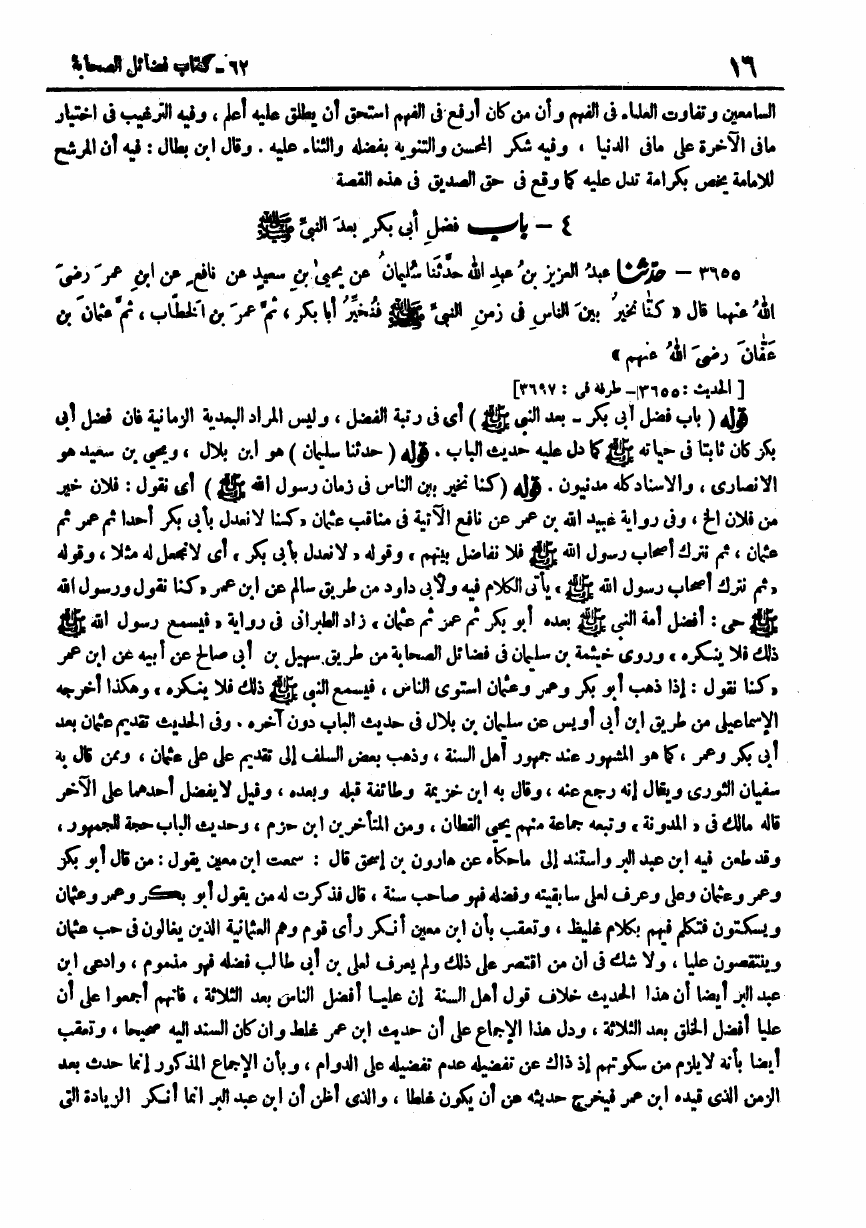 ١٦ ٦٢ - كتاب فضائل الصحابة
السامعين وتفاوت العلماء فى الفهم وأن من كان أرفع فى الفهم استحق أن يطلق عليه أعلم ، وفيه الترغيب فى اختيار
مافى الآخرة على مافى الدنيا ، وفيه شكر المحسن والتنويه بفضله والثناء عليه . وقال ابن بطال : فيه أن المرشح
للامامة يخص بكرامة تدل عليه كما وقع فى حق الصديق فى هذه القصة
٤ - باب فضلِ أبى بكرٍ بعدَ النبىِّ ﷺ
٣٦٥٥ - حدّثنا عبدُ العزيز بنُ عبدِ الله حدَّثَنا سُليمانُ عن يحيىٰ بنِ سعيدٍ عن نافعٍ عن ابنِ عمرَ رضىَ
اللهُ عنهما قال « كنّا نخيرُ بينَ الناسِ فى زمنِ النبىِّ ﷺ فنُخيِّرُ أبا بكر ، ثمَّ عمرَ بن الخطّاب ، ثمَّ عثمانَ بن
عَفّانَ رضىَ اللهُ عنهم »
[ الحديث : ٣٦٥٥ - طرفه فى : ٣٦٩٧]
قوله ( باب فضل أبى بكر - بعد النبى ﷺ ) أى فى رتبة الفضل ، وليس المراد البعدية الزمانية فان فضل أبى
بكر كان ثابتا فى حياته ﷺ كما دل عليه حديث الباب . قوله ( حدثنا سليمان ) هو ابن بلال ، ويحيى بن سعيد هو
الانصارى ، والاسناد كله مدنيون . قوله ( كنا نخير بين الناس فى زمان رسول الله ﷺ ) أى نقول : فلان خير
من فلان الخ ، وفى رواية عبيد الله بن عمر عن نافع الآتية فى مناقب عثمان « كنا لانعدل بأبى بكر أحدا ثم عمر ثم
عثمان ، ثم نترك أصحاب رسول الله ﷺ فلا نفاضل بينهم » وقوله « لانعدل بأبى بكر » أى لانجعل له مثلا ، وقوله
« ثم نترك أصحاب رسول الله ﷺ » يأتى الكلام فيه ولأبى داود من طريق سالم عن ابن عمر « كنا نقول ورسول الله
ﷺ حى : أفضل أمة النبى ﷺ بعده أبو بكر ثم عمر ثم عثمان » زاد الطبرانى فى رواية « فيسمع رسول الله ﷺ
ذلك فلا ينكره » وروى خيثمة بن سليمان فى فضائل الصحابة من طريق سهيل بن أبى صالح عن أبيه عن ابن عمر
« كنا نقول : إذا ذهب أبو بكر وعمر وعثمان استوى الناس ، فيسمع النبى ﷺ ذلك فلا ينكره » وهكذا أخرجه
الإسماعيلى من طريق ابن أبى أويس عن سليمان بن بلال فى حديث الباب دون آخره . وفى الحديث تقديم عثمان بعد
أبى بكر وعمر ، كما هو المشهور عند جمهور أهل السنة ، وذهب بعض السلف إلى تقديم على على عثمان ، وممن قال به
سفيان الثورى ويقال إنه رجع عنه ، وقال به ابن خزيمة وطائفة قبله وبعده ، وقيل لايفضل أحدهما على الآخر
قاله مالك فى « المدونة » وتبعه جماعة منهم يحيى القطان ، ومن المتأخرين ابن حزم ، وحديث الباب حجة للجمهور ،
وقد طعن فيه ابن عبد البر واستند إلى ماحكاه عن هارون بن إسحق قال : سمعت ابن معين يقول : من قال أبو بكر
وعمر وعثمان وعلى وعرف لعلى سابقيته وفضله فهو صاحب سنة ، قال فذكرت له من يقول أبو بكر وعمر وعثمان
ويسكتون فتكلم فيهم بكلام غليظ ، وتعقب بأن ابن معين أنكر رأى قوم وهم العثمانية الذين يغالون فى حب عثمان
وينتقصون عليا ، ولا شك فى أن من اقتصر على ذلك ولم يعرف لعلى بن أبى طالب فضله فهو مذموم ، وادعى ابن
عبد البر أيضا أن هذا الحديث خلاف قول أهل السنة إن عليا أفضل الناس بعد الثلاثة ، فانهم أجمعوا على أن
عليا أفضل الخلق بعد الثلاثة ، ودل هذا الإجماع على أن حديث ابن عمر غلط وان كان السند اليه صحيحا ، وتعقب
أيضا بأنه لايلزم من سكوتهم إذ ذاك عن تفضيله عدم تفضيله على الدوام ، وبأن الإجماع المذكور إنما حدث بعد
الزمن الذى قيده ابن عمر فيخرج حديثه عن أن يكون غلطا ، والذى أظن أن ابن عبد البر انما أنكر الزيادة التى